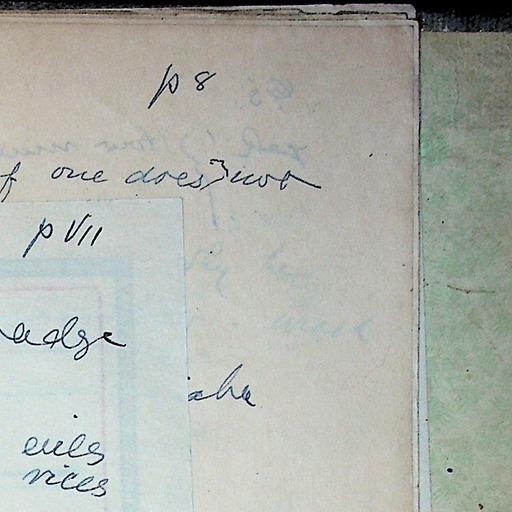 p 8
f one does not
p VII
adge
evils
vices